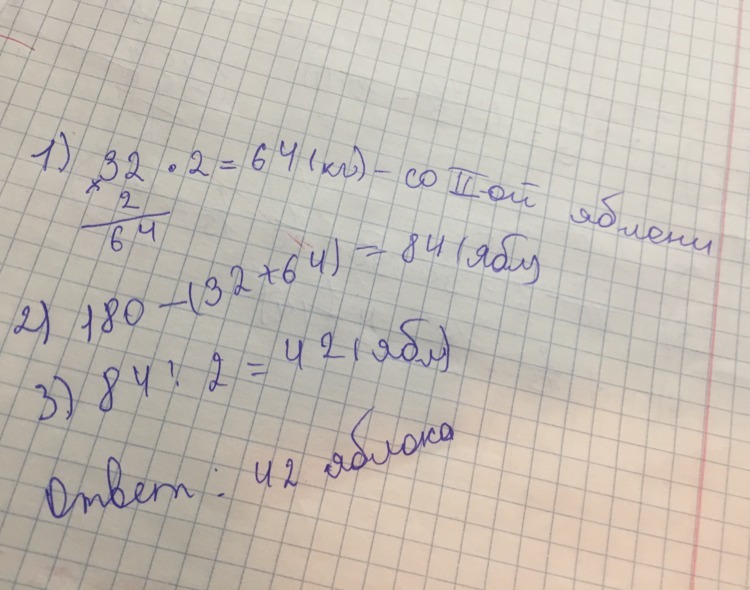 1) 32 · 2 = 64 (кг) - со II-ой яблони
× 2
64
2) 180 - (32 + 64) = 84 (ябл)
3) 84 : 2 = 42 (ябл)
Ответ: 42 яблока